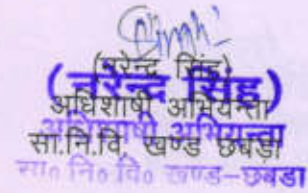 (नरेन्द्र सिंह)
(नरेन्द्र सिंह)
अधिशाषी अभियन्ता
अधिशाषी अभियन्ता
सा.नि.वि. खण्ड छबड़ा
सा० नि० वि० खण्ड-छबडा